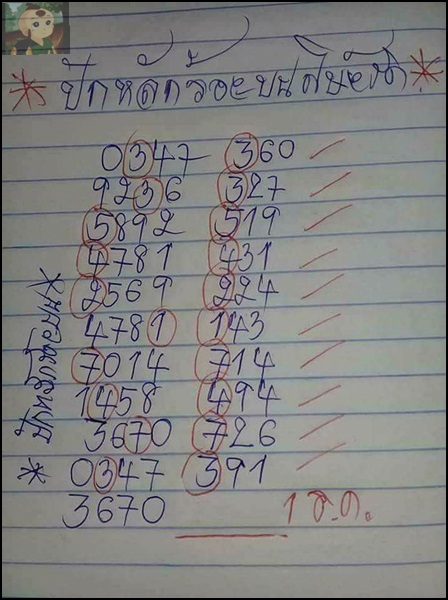 * ปักหลักร้อยบนทีนี่จ้า *
0347 360
9236 327
5892 519
4781 431
2569 224
4781 143
7014 714
1458 494
3670 726
0347 391
3670 1 ธ.ค.
* ปักหลักร้อยบน *